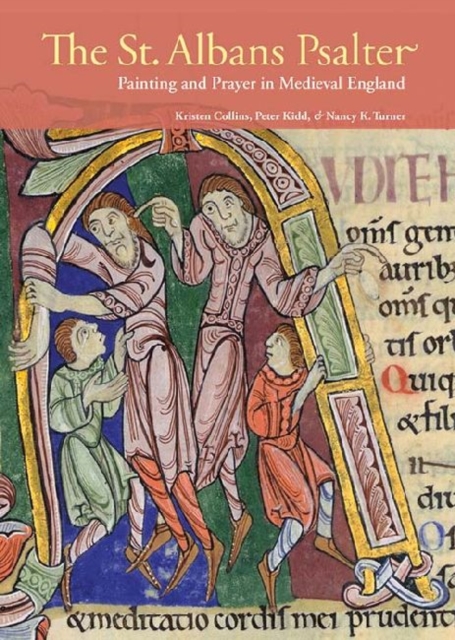 The St. Albans Psalter
Painting and Prayer in Medieval England
Kristen Collins, Peter Kidd, & Nancy K. Turner
VDITE H
om̅s gen
auribꝫ
om̅s q
tıſ or
Quiq
& fılı
dıu
& medıtatıo cordıſ meı prudent